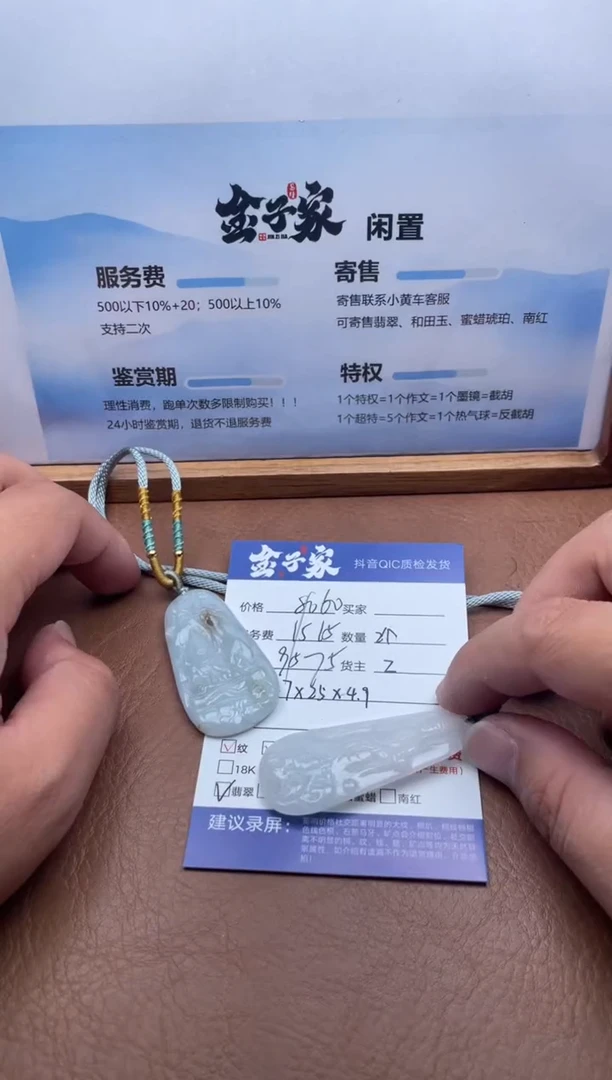 金子家 闲置
服务费
500以下10%+20；500以上10%
支持二次
寄售
寄售联系小黄车客服
可寄售翡翠、和田玉、蜜蜡琥珀、南红
鉴赏期
理性消费，跑单次数多限制购买！！！
24小时鉴赏期，退货不退服务费
特权
1个特权=1个作文=1个墨镜=截胡
1个超特=5个作文=1个热气球=反截胡
金子家 抖音QIC质检发货
价格 买家
务费 1515 数量
95-75 货主 2
7×35×4.9
纹
18K
生费用）
翡翠 蜜蜡 南红
建议录屏：